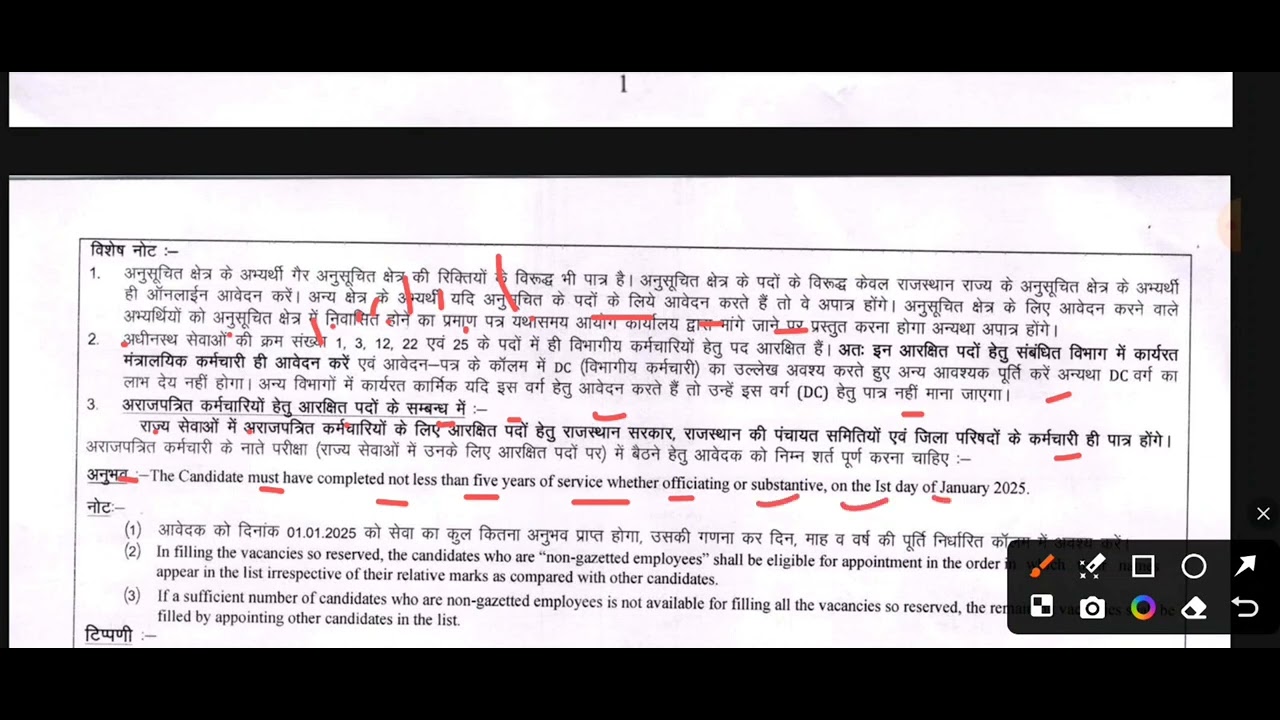 1
विशेष नोट :–
1. अनुसूचित क्षेत्र के अभ्यर्थी गैर अनुसूचित क्षेत्र की रिक्तियों के विरूद्ध भी पात्र है। अनुसूचित क्षेत्र के पदों के विरूद्ध केवल राजस्थान राज्य के अनुसूचित क्षेत्र के अभ्यर्थी
ही ऑनलाईन आवेदन करें। अन्य क्षेत्र के अभ्यर्थी यदि अनुसूचित के पदों के लिये आवेदन करते हैं तो वे अपात्र होंगे। अनुसूचित क्षेत्र के लिए आवेदन करने वाले
अभ्यर्थियों को अनुसूचित क्षेत्र में निवासित होने का प्रमाण पत्र यथासमय आयोग कार्यालय द्वारा मांगे जाने पर प्रस्तुत करना होगा अन्यथा अपात्र होंगे।
2. अधीनस्थ सेवाओं की क्रम संख्या 1, 3, 12, 22 एवं 25 के पदों में ही विभागीय कर्मचारियों हेतु पद आरक्षित हैं। अतः इन आरक्षित पदों हेतु संबंधित विभाग में कार्यरत
मंत्रालयिक कर्मचारी ही आवेदन करें एवं आवेदन–पत्र के कॉलम में DC (विभागीय कर्मचारी) का उल्लेख अवश्य करते हुए अन्य आवश्यक पूर्ति करें अन्यथा DC वर्ग का
लाभ देय नहीं होगा। अन्य विभागों में कार्यरत कार्मिक यदि इस वर्ग हेतु आवेदन करते हैं तो उन्हें इस वर्ग (DC) हेतु पात्र नहीं माना जाएगा।
3. अराजपत्रित कर्मचारियों हेतु आरक्षित पदों के सम्बन्ध में :–
राज्य सेवाओं में अराजपत्रित कर्मचारियों के लिए आरक्षित पदों हेतु राजस्थान सरकार, राजस्थान की पंचायत समितियों एवं जिला परिषदों के कर्मचारी ही पात्र होंगे।
अराजपत्रित कर्मचारी के नाते परीक्षा (राज्य सेवाओं में उनके लिए आरक्षित पदों पर) में बैठने हेतु आवेदक को निम्न शर्त पूर्ण करना चाहिए :–
अनुभव :–The Candidate must have completed not less than five years of service whether officiating or substantive, on the Ist day of January 2025.
नोटः–
(1) आवेदक को दिनांक 01.01.2025 को सेवा का कुल कितना अनुभव प्राप्त होगा, उसकी गणना कर दिन, माह व वर्ष की पूर्ति निर्धारित कॉलम में अवश्य करें।
(2) In filling the vacancies so reserved, the candidates who are “non-gazetted employees” shall be eligible for appointment in the order in which
appear in the list irrespective of their relative marks as compared with other candidates.
(3) If a sufficient number of candidates who are non-gazetted employees is not available for filling all the vacancies so reserved, the
filled by appointing other candidates in the list.
टिप्पणी :–